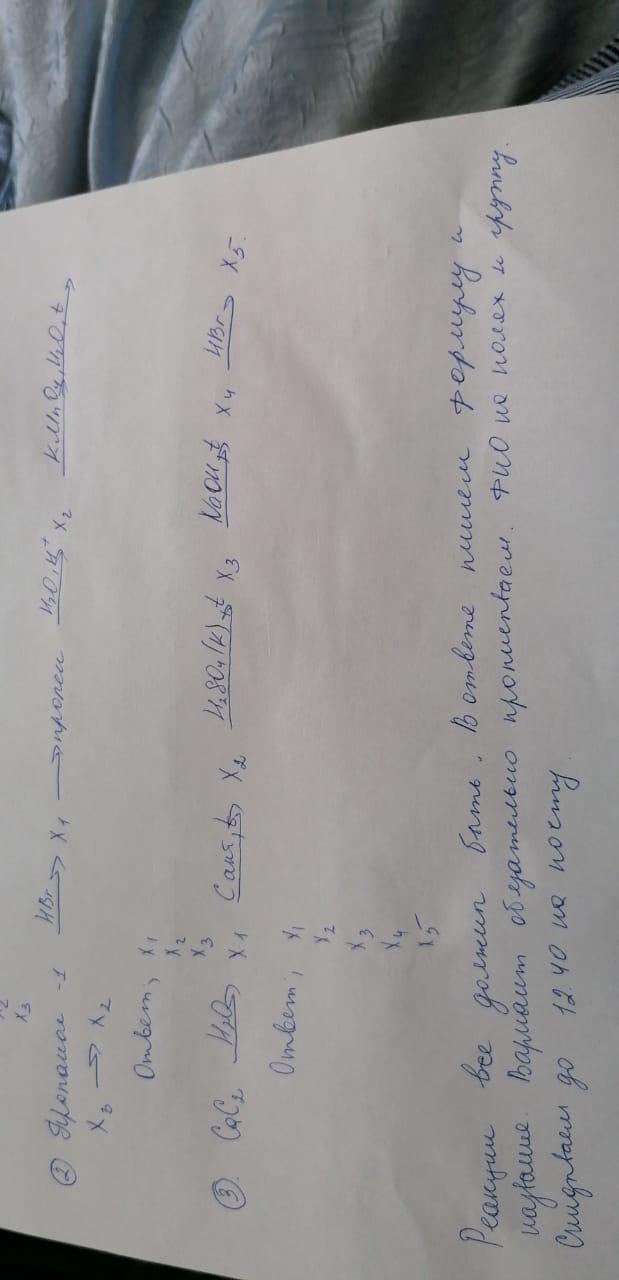 x2
x3
② Пропанол -1 HBr→ x1 → пропен H2O, H+ x2 KMnO4, H2O, t→
x3 → x2
Ответ; x1
x2
x3
③. CaC2 H2O→ x1 C акт, t→ x2 H2SO4(к), t x3 NaOH, t x4 HBr→ x5.
Ответ; x1
x2
x3
x4
x5
Реакции все должны быть. В ответе пишем формулу и
название. Вариант обязательно прописываем. ФИО на полях и группу.
Скидываем до 12.40 на почту.